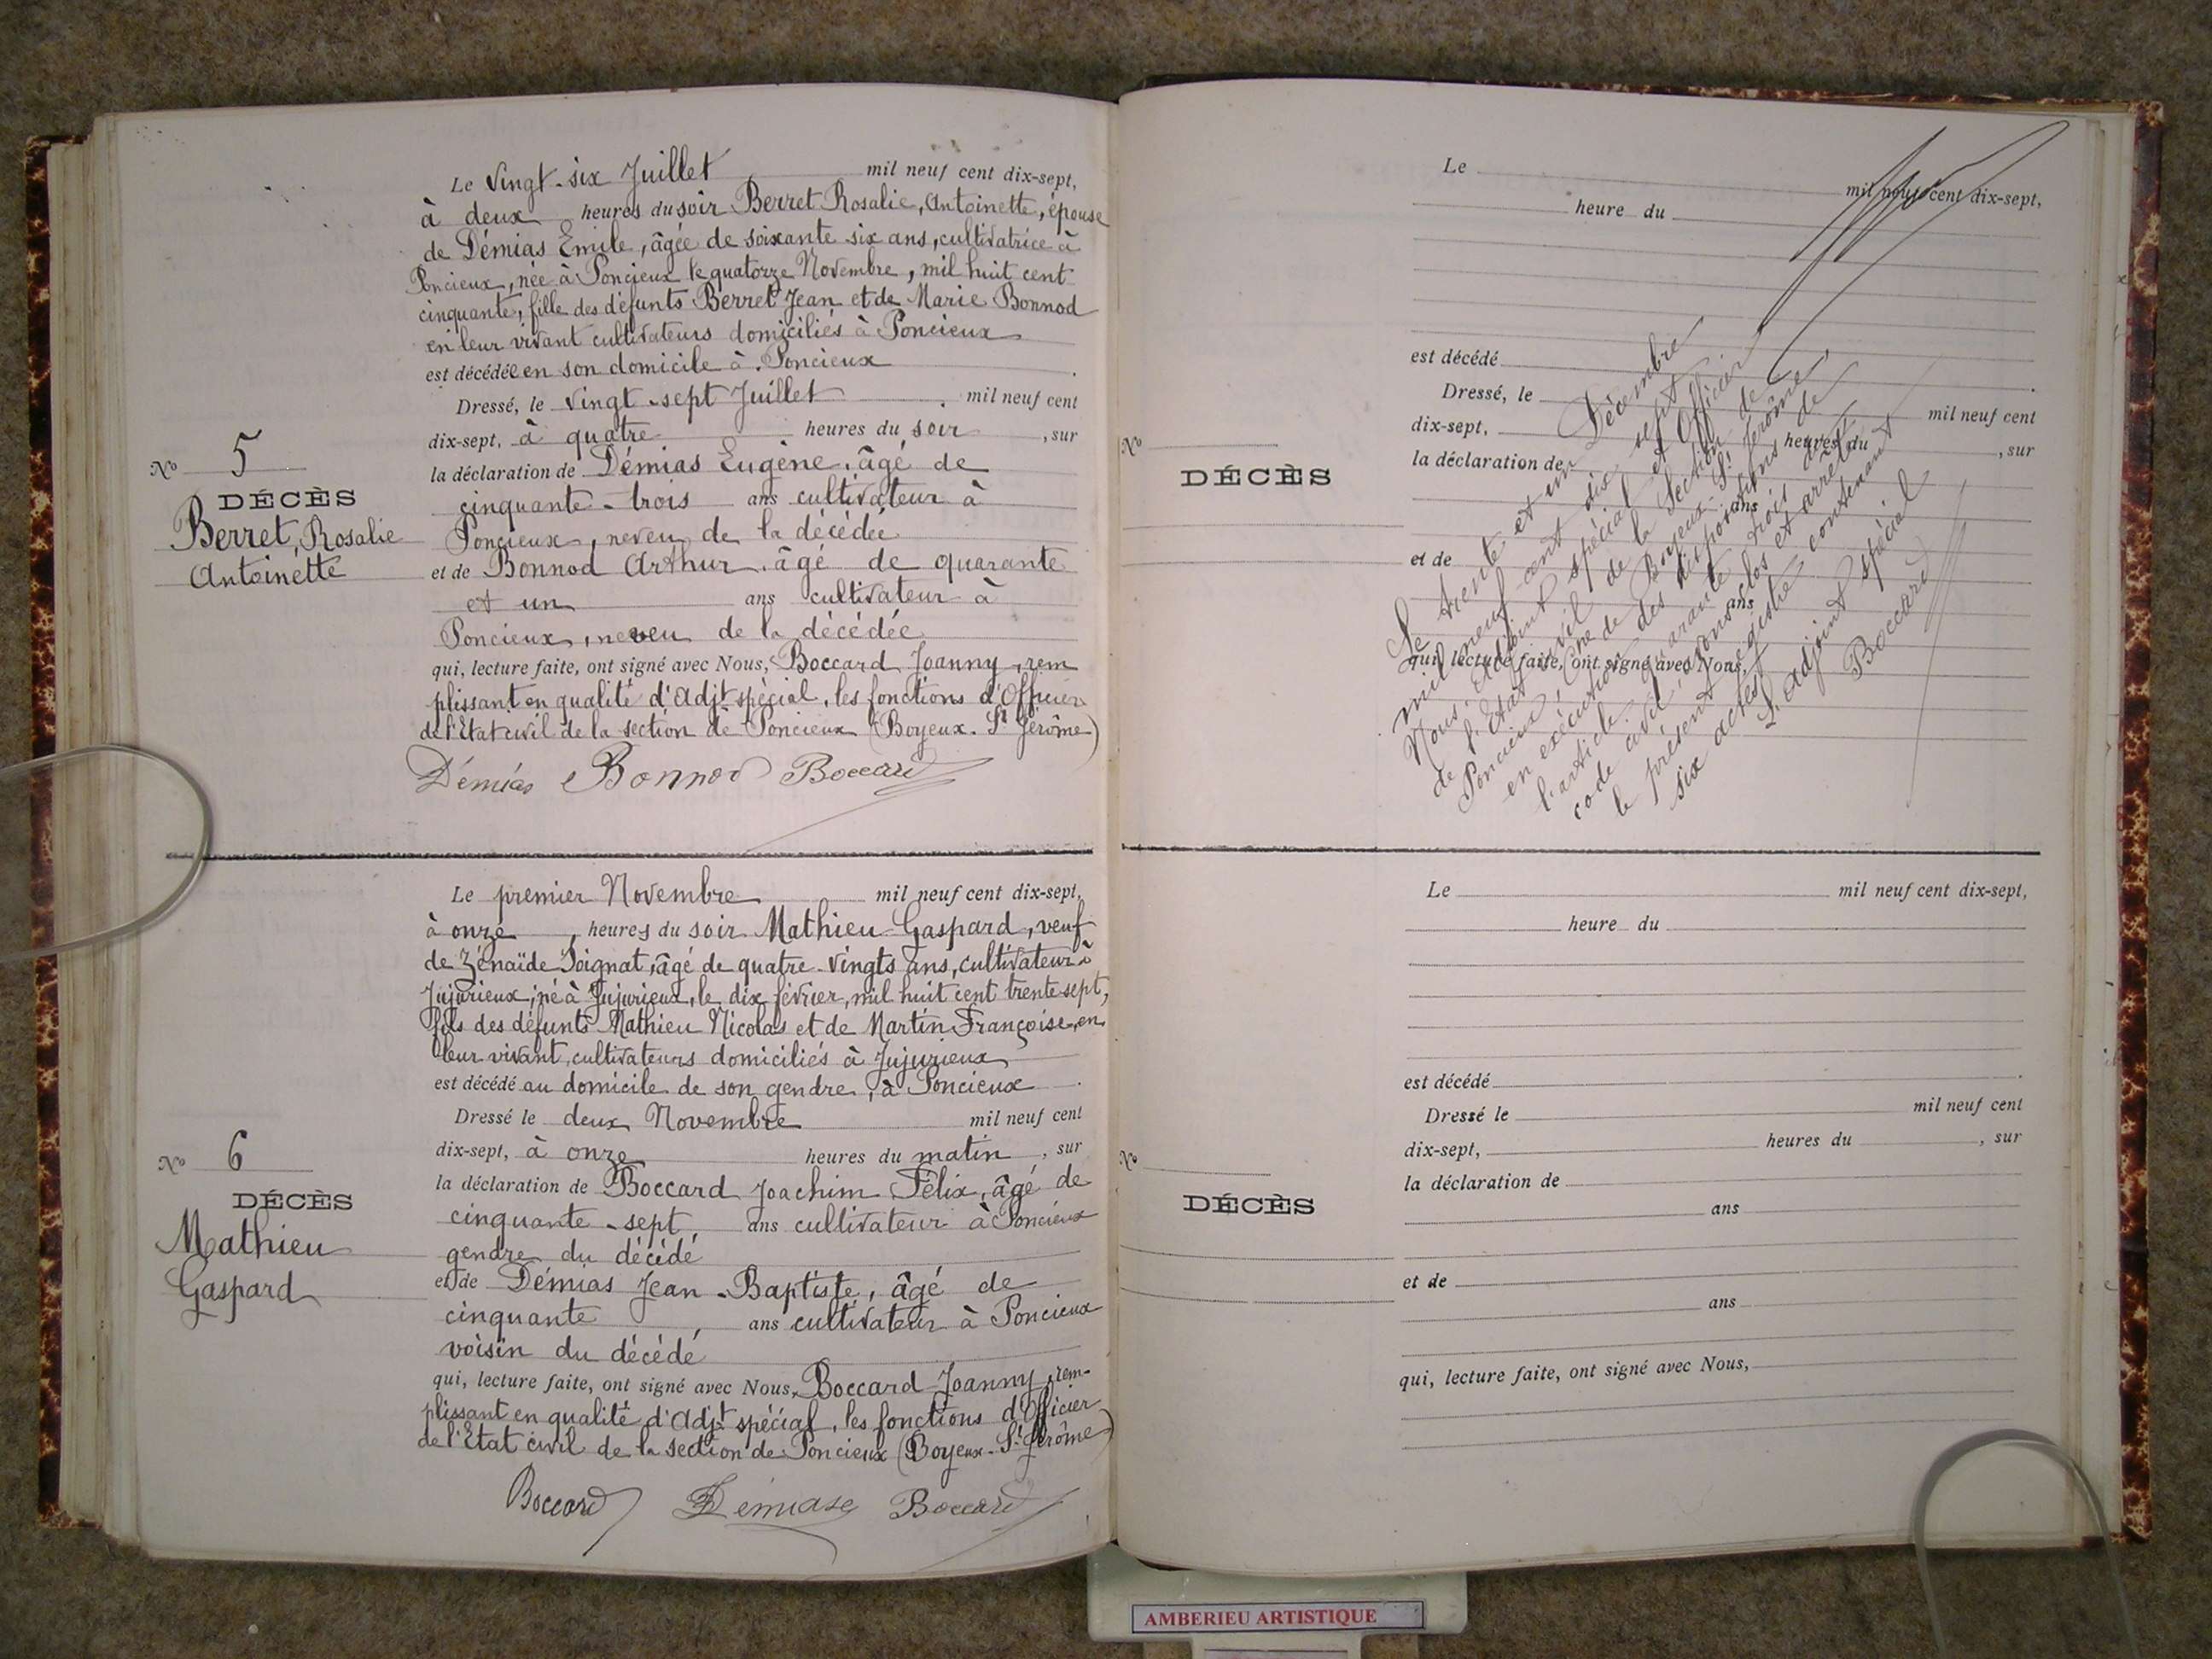 Le vingt-six Juillet mil neuf cent dix-sept,
à deux heures du soir Berret Rosalie, Antoinette, épouse
de Démias Emile, âgée de soixante six ans, cultivatrice à
Poncieux, née à Poncieux le quatorze Novembre, mil huit cent
cinquante, fille des défunts Berret Jean et de Marie Bonnod
en leur vivant cultivateurs domiciliés à Poncieux
est décédée en son domicile à Poncieux.
Dressé, le vingt-sept Juillet mil neuf cent
dix-sept, à quatre heures du soir, sur
la déclaration de Démias Eugène, âgé de
cinquante-trois ans cultivateur à
Poncieux, neveu de la décédée
et de Bonnod Arthur, âgé de quarante
et un ans cultivateur à
Poncieux, neveu de la décédée
qui, lecture faite, ont signé avec Nous, Boccard Joanny, rem
plissant en qualité d'Adjt spécial, les fonctions d'Officier
de l'Etat civil de la section de Poncieux (Boyeux-St Jérôme)
Démias Bonnod Boccard
No 5
DÉCÈS
Berret, Rosalie
Antoinette
Le premier Novembre mil neuf cent dix-sept,
à onze, heures du soir Mathieu Gaspard, veuf
de Zénaïde Soignat, âgé de quatre-vingts ans, cultivateur à
Jujurieux, né à Jujurieux, le dix février, mil huit cent trente sept,
fils des défunts Mathieu Nicolas et de Martin Françoise, en
leur vivant, cultivateurs domiciliés à Jujurieux
est décédé au domicile de son gendre, à Poncieux.
Dressé le deux Novembre mil neuf cent
dix-sept, à onze heures du matin, sur
la déclaration de Boccard Joachim Félix, âgé de
cinquante-sept ans cultivateur à Poncieux
gendre du décédé
et de Démias Jean-Baptiste, âgé de
cinquante, ans cultivateur à Poncieux
voisin du décédé
qui, lecture faite, ont signé avec Nous, Boccard Joanny, rem-
plissant en qualité d'Adjt spécial, les fonctions d'Officier
de l'Etat civil de la section de Poncieux (Boyeux-St Jérôme)
Boccard Démiase Boccard
No 6
DÉCÈS
Mathieu
Gaspard
Le mil neuf cent dix-sept,
heure du
est décédé.
Dressé, le mil neuf cent
dix-sept, heures du, sur
la déclaration de
ans
et de
ans
qui, lecture faite, ont signé avec Nous,
No
DÉCÈS
Le trente et un Décembre
mil neuf cent dix sept
Nous, Adjoint spécial et Officier
de l'Etat civil de la Section de
Poncieux, Cne de Boyeux-St Jérôme,
en exécution des dispositions de
l'article quarante trois du
code civil, avons clos et arrêté
le présent registre contenant
six actes.
L'adjoint spécial
Boccard
Le mil neuf cent dix-sept,
heure du
est décédé.
Dressé le mil neuf cent
dix-sept, heures du, sur
la déclaration de
ans
et de
ans
qui, lecture faite, ont signé avec Nous,
No
DÉCÈS
AMBERIEU ARTISTIQUE